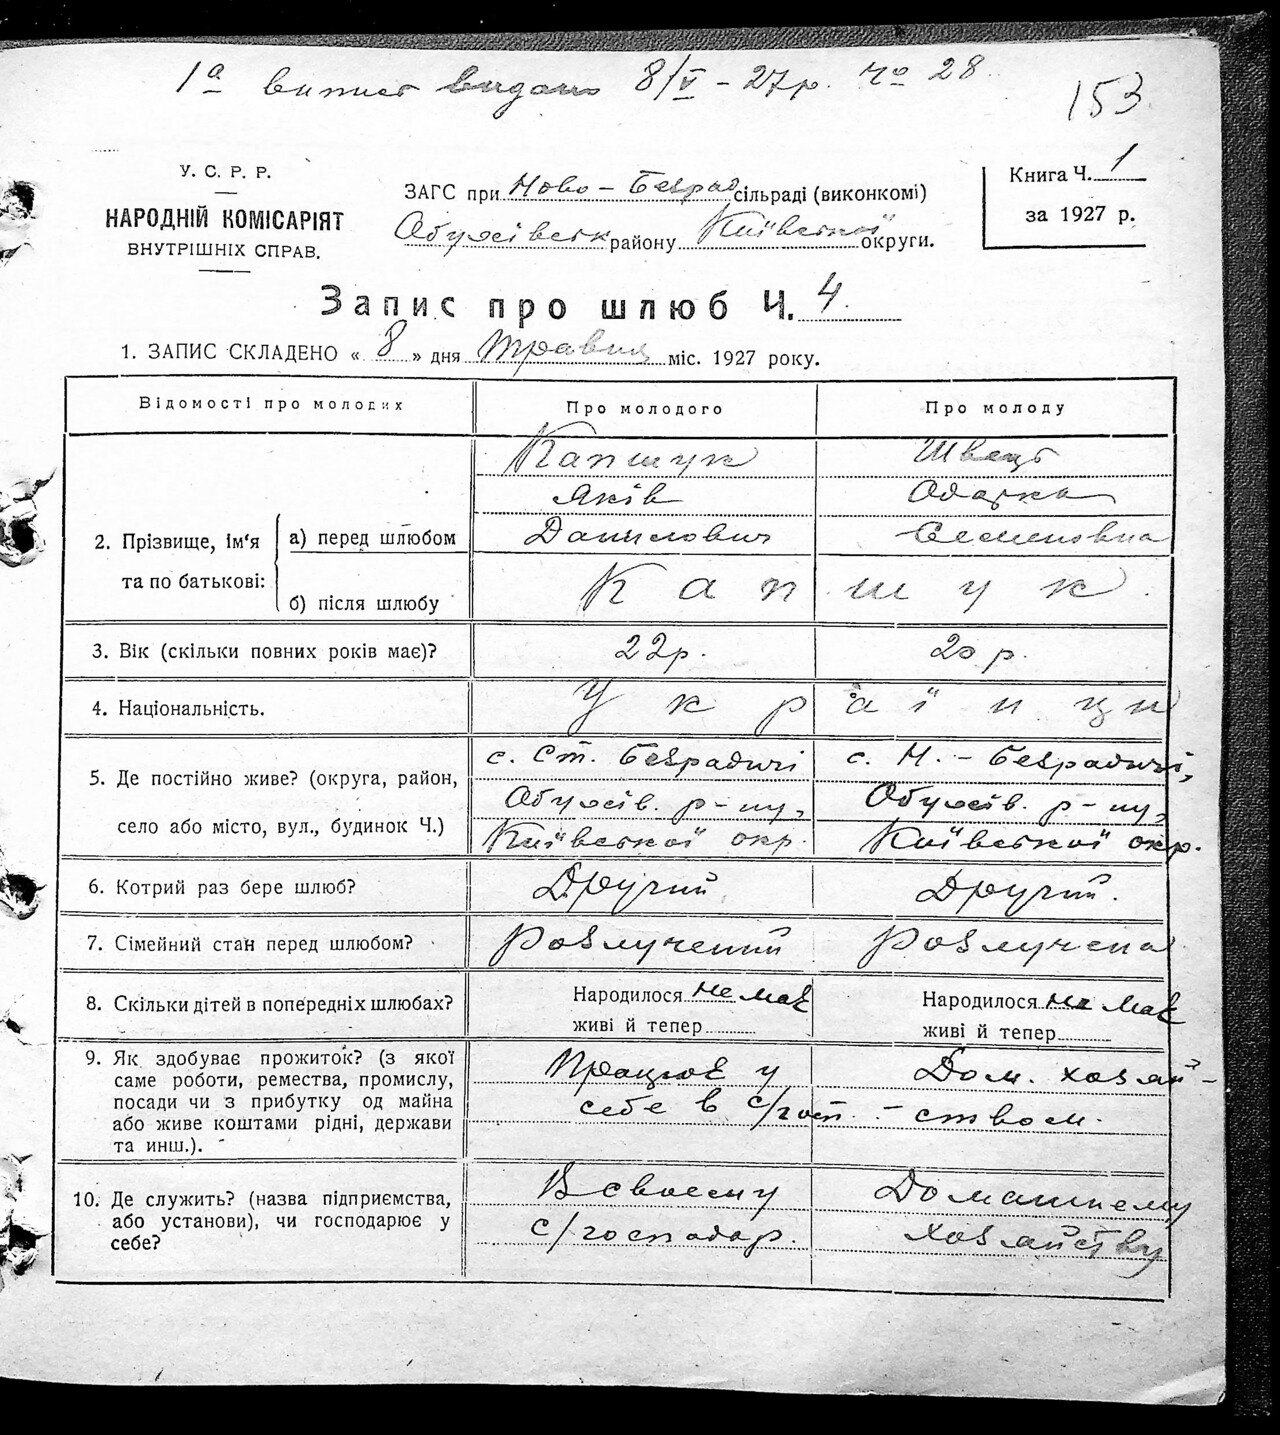 1а випис видано 8/V – 27 р. № 28
153
У. С. Р. Р.
НАРОДНІЙ КОМІСАРІЯТ
ВНУТРІШНІХ СПРАВ.
ЗАГС при Ново – Безрад сільраді (виконкомі)
Обухівськ району Київської округи.
Книга Ч. 1
за 1927 р.
Запис про шлюб Ч. 4
1. ЗАПИС СКЛАДЕНО « 8 » дня травня міс. 1927 року.
Відомості про молодих
Про молодого
Про молоду
2. Прізвище, ім'я та по батькові:
а) перед шлюбом
Капшук
Яків
Данилович
Швець
Одарка
Семеновна
б) після шлюбу
Капшук
3. Вік (скільки повних років має)?
22 р.
20 р.
4. Національність.
Українци
5. Де постійно живе? (округа, район,
село або місто, вул., будинок Ч.)
с. Ст. Безрадичі
Обухів. р-ну,
Київської окр.
с. Н. – Безрадичі,
Обухів. р-ну,
Київської окр.
6. Котрий раз бере шлюб?
Другий
Другий.
7. Сімейний стан перед шлюбом?
Розлучений
Розлучена
8. Скільки дітей в попередніх шлюбах?
Народилося не має
живі й тепер
Народилося не має
живі й тепер
9. Як здобуває прожиток? (з якої
саме роботи, ремества, промислу,
посади чи з прибутку од майна
або живе коштами рідні, держави
та инш.).
Працює у
себе в с/госп.
Дом. хазяй-
-ством.
10. Де служить? (назва підприємства,
або установи), чи господарює у
себе?
В своему
с/господар.
Домашнему
хозяйству